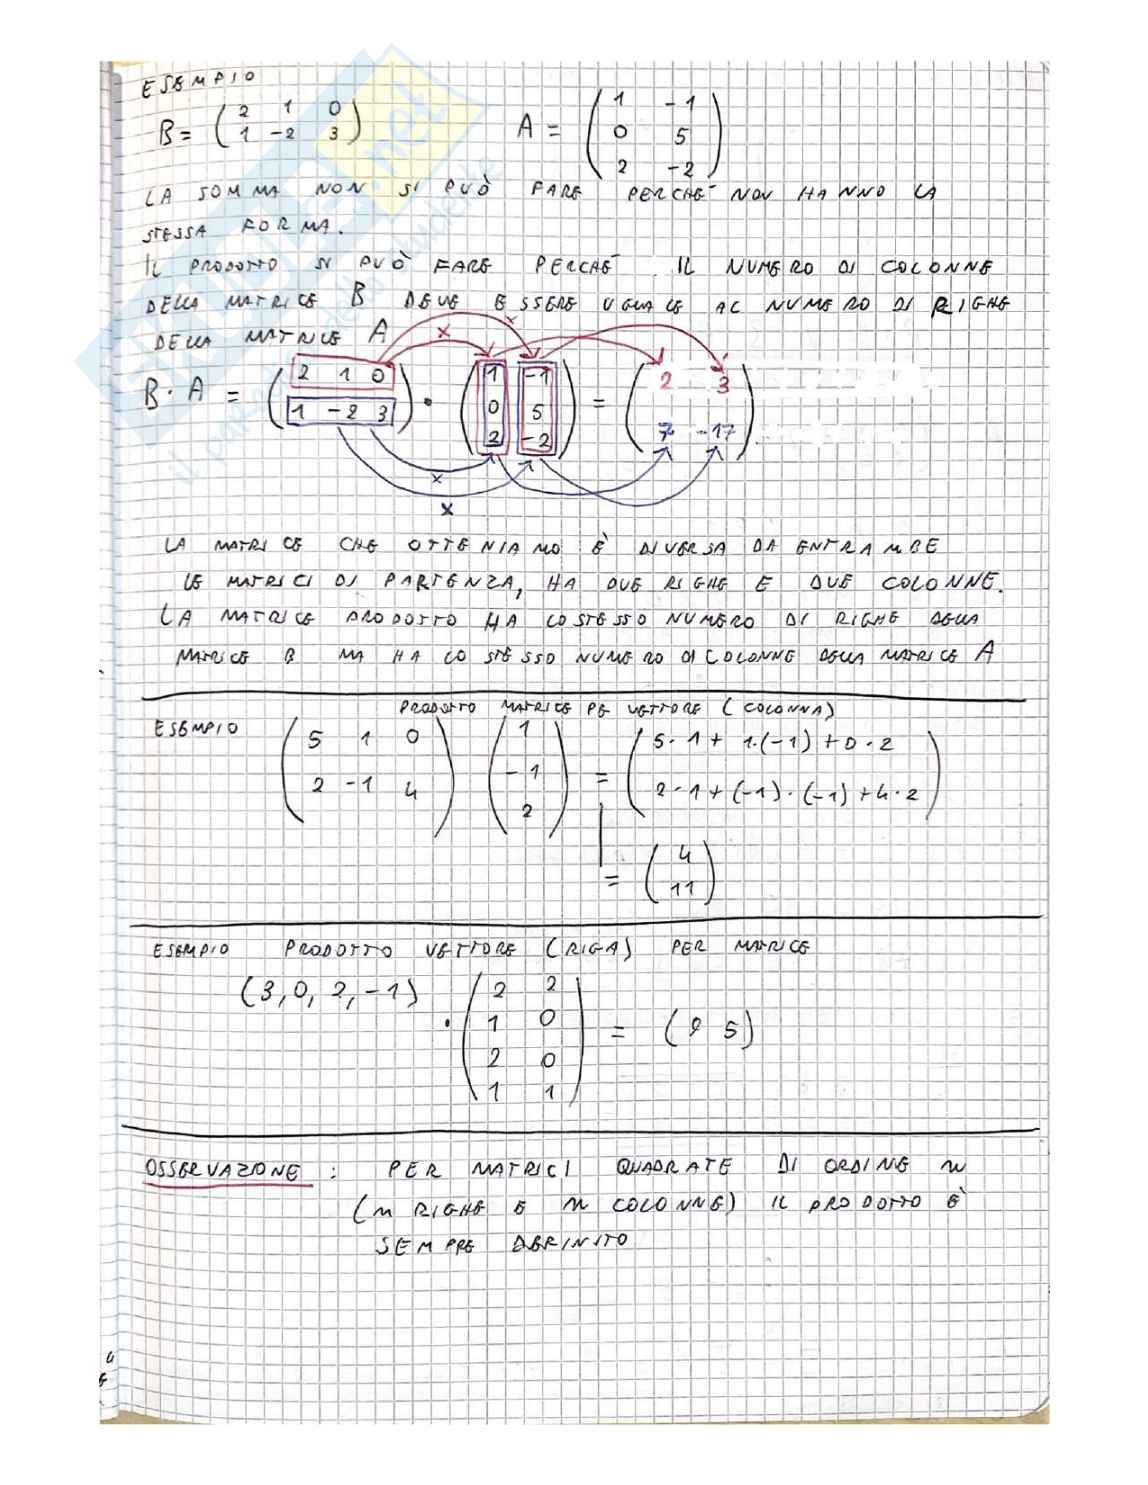 ESEMPIO
B = ( 2 1 0 )   A = ( 1 -1 )
( 1 -2 3 )   ( 0 5 )
( 2 -2 )
LA SOMMA NON SI PUÒ FARE PERCHÉ NON HANNO LA
STESSA FORMA.
IL PRODOTTO SI PUÒ FARE PERCHÉ IL NUMERO DI COLONNE
DELLA MATRICE B DEVE ESSERE UGUALE AL NUMERO DI RIGHE
DELLA MATRICE A
B · A = ( 2 1 0 ) · ( 1 -1 ) = ( 2 3 )
( 1 -2 3 ) ( 0 5 ) ( 7 -17 )
( 2 -2 )
x x
x
x
LA MATRICE CHE OTTENIAMO È DIVERSA DA ENTRAMBE
LE MATRICI DI PARTENZA, HA DUE RIGHE E DUE COLONNE.
LA MATRICE PRODOTTO HA LO STESSO NUMERO DI RIGHE DELLA
MATRICE B MA HA LO STESSO NUMERO DI COLONNE DELLA MATRICE A
PRODOTTO MATRICE PE VETTORE (COLONNA)
ESEMPIO ( 5 1 0 ) ( 1 ) = ( 5·1 + 1·(-1) + 0·2 )
( 2 -1 4 ) ( -1 ) ( 2·1 + (-1)·(-1) + 4·2 )
( 2 )
= ( 4 )
( 11 )
ESEMPIO PRODOTTO VETTORE (RIGA) PER MATRICE
(3, 0, 2, -1) · ( 2 2 )
( 1 0 ) = ( 9 5 )
( 2 0 )
( 1 1 )
OSSERVAZIONE : PER MATRICI QUADRATE DI ORDINE n
(n RIGHE E n COLONNE) IL PRODOTTO È
SEMPRE DEFINITO